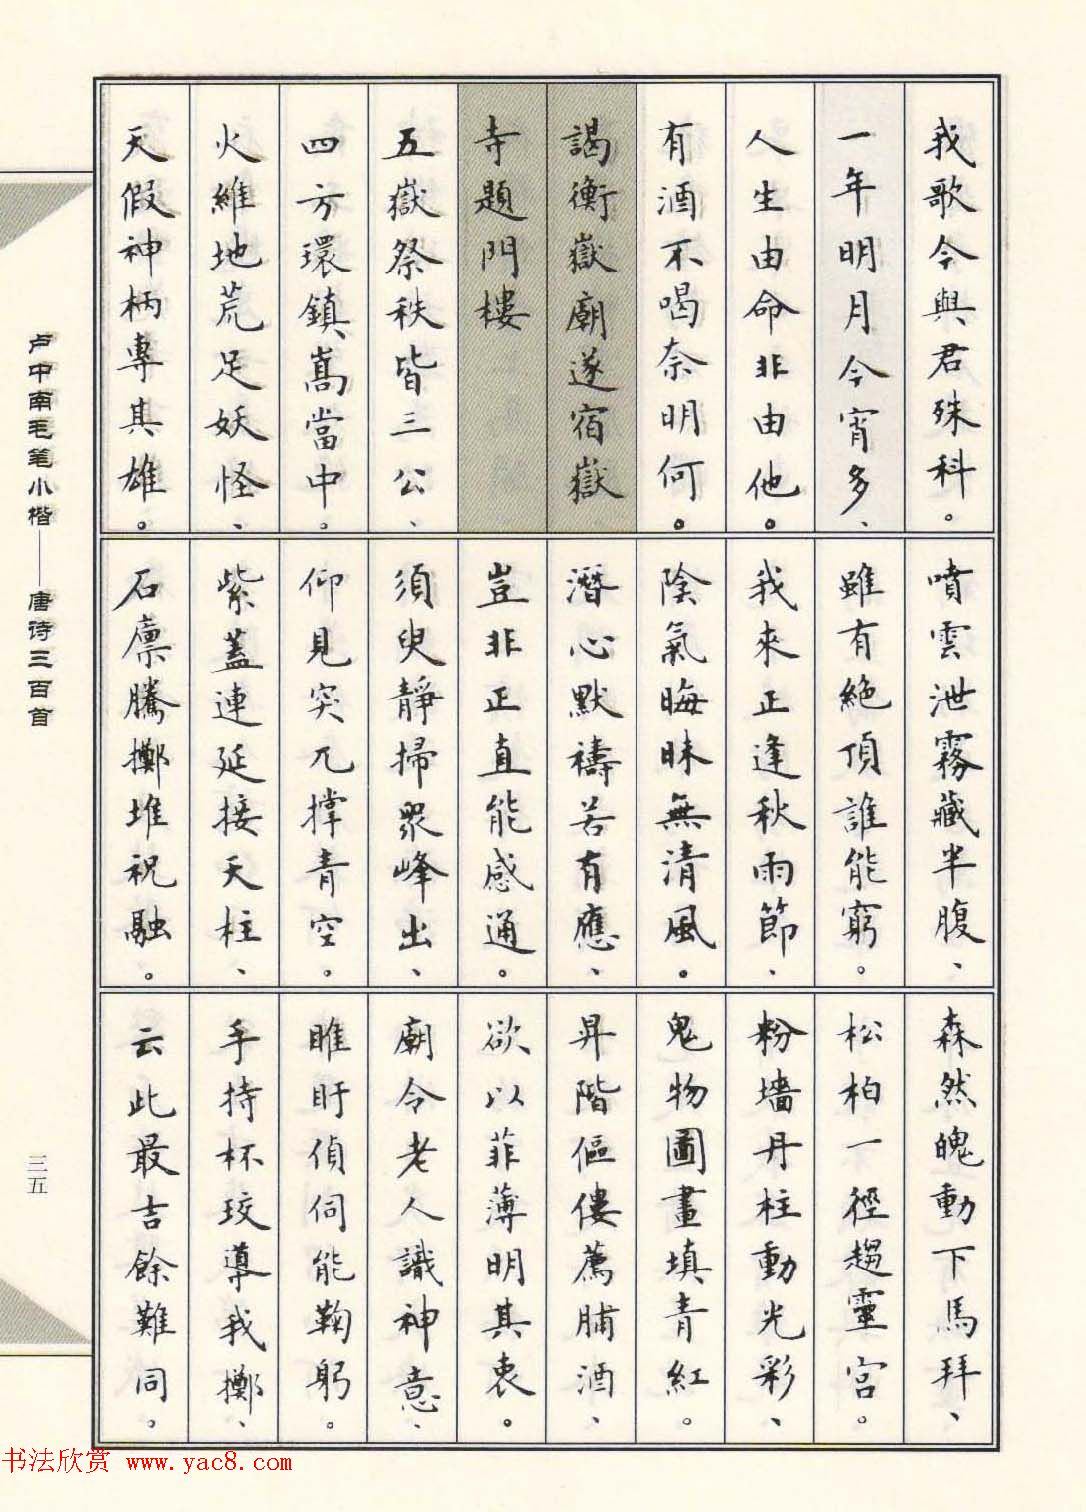 我歌今與君殊科。
一年明月今宵多、
人生由命非由他。
有酒不喝奈明何。
謁衡嶽廟遂宿嶽
寺題門樓
五嶽祭秩皆三公、
四方環鎮嵩當中。
火維地荒足妖怪、
天假神柄專其雄。
噴雲泄霧藏半腹、
雖有絕頂誰能窮。
我來正逢秋雨節、
陰氣晦昧無清風。
潛心默禱若有應、
豈非正直能感通。
須臾靜掃眾峰出、
仰見突兀撐青空。
紫蓋連延接天柱、
石廩騰擲堆祝融。
森然魄動下馬拜、
松柏一徑趨靈宮。
粉墻丹柱動光彩、
鬼物圖畫填青紅。
昇階傴僂薦脯酒、
欲以菲薄明其衷。
廟令老人識神意、
睢盱偵伺能鞠躬。
手持杯珓導我擲、
云此最吉餘難同。
卢中南毛笔小楷——唐诗三百首
三五
书法欣赏 www.yac8.com